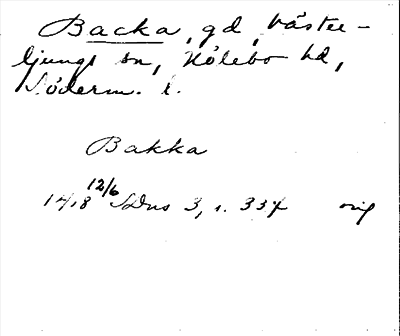 Backa, gd, Väster-
ljungs sn, Hölebo hd,
Söderm. l.
Bakka
1418 12/6 SDns 3, s. 334 orig